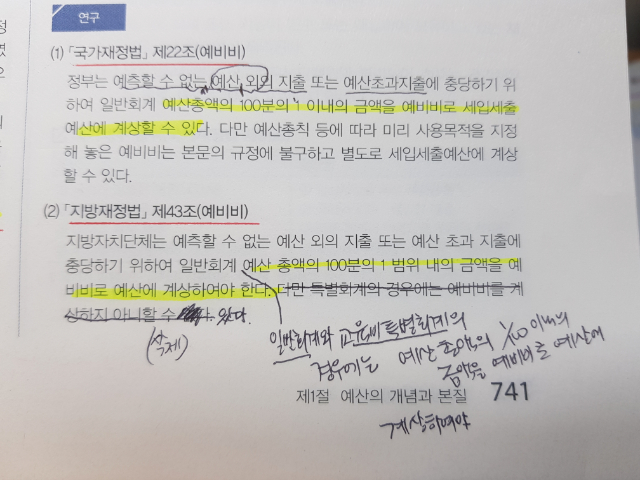 연구
(1) 「국가재정법」 제22조(예비비)
정부는 예측할 수 없는 예산 외의 지출 또는 예산초과지출에 충당하기 위
하여 일반회계 예산총액의 100분의 1 이내의 금액을 예비비로 세입세출
예산에 계상할 수 있다. 다만 예산총칙 등에 따라 미리 사용목적을 지정
해 놓은 예비비는 본문의 규정에 불구하고 별도로 세입세출예산에 계상
할 수 있다.
(2) 「지방재정법」 제43조(예비비)
지방자치단체는 예측할 수 없는 예산 외의 지출 또는 예산 초과 지출에
충당하기 위하여 일반회계 예산 총액의 100분의 1 범위 내의 금액을 예
비비로 예산에 계상하여야 한다. 다만 특별회계의 경우에는 예비비를 계
상하지 아니할 수 있다.
(삭제)
일반회계와 교육비특별회계의
경우에는 예산총액의 1/100 이내의
금액을 예비비로 예산에
계상하여야
제1절 예산의 개념과 본질 741